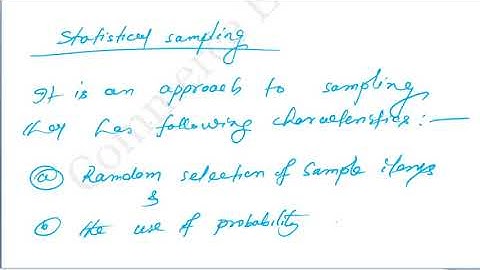 Statistical sampling
It is an approach to sampling
that has following characteristics:—
(a) Random selection of sample items
&
(b) the use of probability